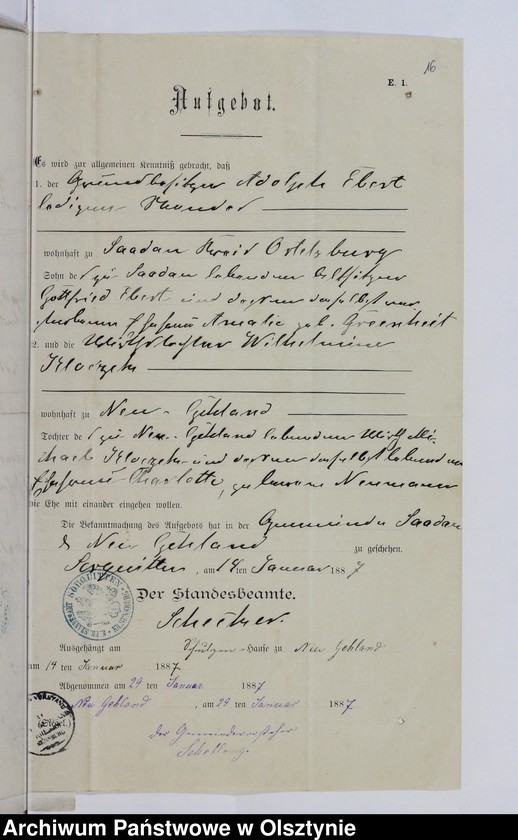 16
E. 1.
Aufgebot.
Es wird zur allgemeinen Kenntniß gebracht, daß
1. der Grundbesitzer Adolph Ebert
ledigen Standes
wohnhaft zu Saadau Kreis Ortelsburg
Sohn des zu Saadau lebenden Altsitzers
Gottfried Ebert und dessen daselbst ver-
storbenen Ehefrau Amalie geb. Greenheit
2. und die Wirthstochter Wilhelmine
Kloczek
wohnhaft zu Neu-Gehland
Tochter des zu Neu-Gehland lebenden Wirth Mi-
chael Kloczek und dessen daselbst lebenden
Ehefrau Charlotte, geborene Neumann
die Ehe mit einander eingehen wollen.
Die Bekanntmachung des Aufgebots hat in der Gemeinde Saadau
& Neu Gehland
zu geschehen.
Sorquitten, am 14ten Januar 1887
Der Standesbeamte.
Ausgehängt am Schulzen-Hause zu Neu Gehland
am 14 ten Januar 1887.
Abgenommen am 29 ten Januar 1887
Neu Gehland, am 29 ten Januar 1887.
Der Gemeindevorsteher
Archiwum Państwowe w Olsztynie